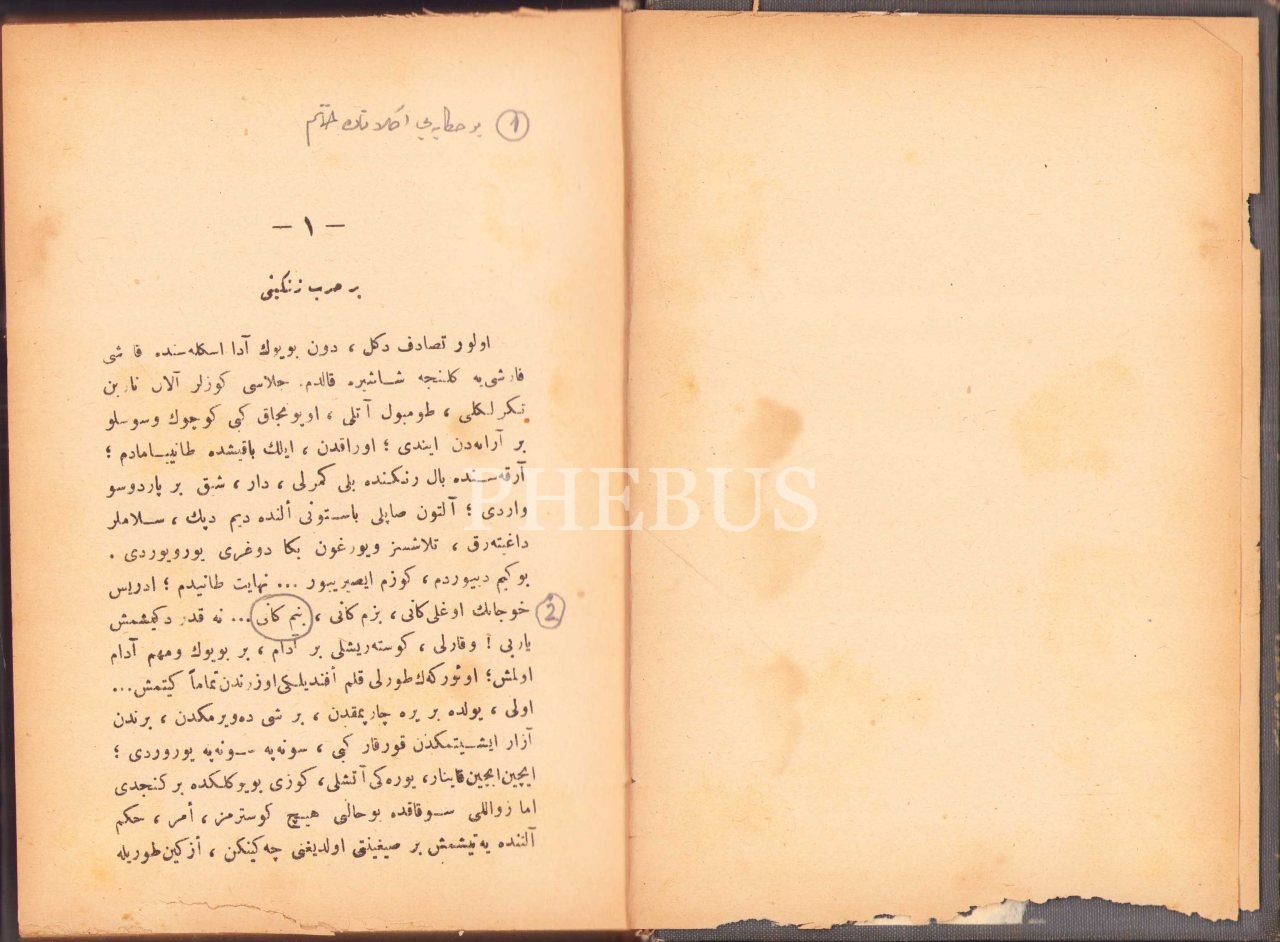 ① بو حكايه‌يی
— ۱ —
بر حرب زنكينی
اولور تصادف دكل ، دون بويوك آدا اسكله‌سنده قاشی
قارشی‌يه كلنجه شاشيره قالدم. جلاسی كوزلر آلان نارين
تكرلكلی ، طومبول آتلی ، اويونجاق كبی كوچوك وسوسلو
بر آرابه‌دن ايندی ؛ اوراقدن ، ايلك باقيشده طانييامادم ؛
آرقه‌سنده بال رنكنده بلی كمرلی ، دار ، شق بر پاردوسو
واردی ؛ آلتون صاپلی باستونی ألنده ديم ديك ، سلاملر
داغيته‌رق ، تلاشسز ويورغون بكا دوغری يورويوردی .
بوكيم ديييوردم ، كوزم ايصيرييور ... نهايت طانيدم ؛ ادريس
خوجانك اوغلی كانی ، بزم كانی ، بنم كانی ... نه قدر دكيشمش ②
ياربی ! وقارلی ، كوسته‌ريشلی بر آدام ، بر بويوك ومهم آدام
اولمش ؛ اوئوركه‌ك طورلی قلم أفنديلكی اوزرندن تماماً كيتمش...
اولی ، يولده بر يره چارپمقدن ، بر شی ده‌ويرمكدن ، برندن
آزار ايشيتمكدن قورقار كبی ، سونه‌په سونه‌په يوروردی ؛
ايچين ايچين قاينار، يوره‌كی آتشلی، كوزی بويوكلكده بر كنجدی
اما زواللی سوقاقده بوحالی هيچ كوسترمز ، أمر ، حكم
آلتنده يه‌تيشمش بر صيغينتی اولديغنی چه‌كينكن ، أزكين طوريله
PHEBUS